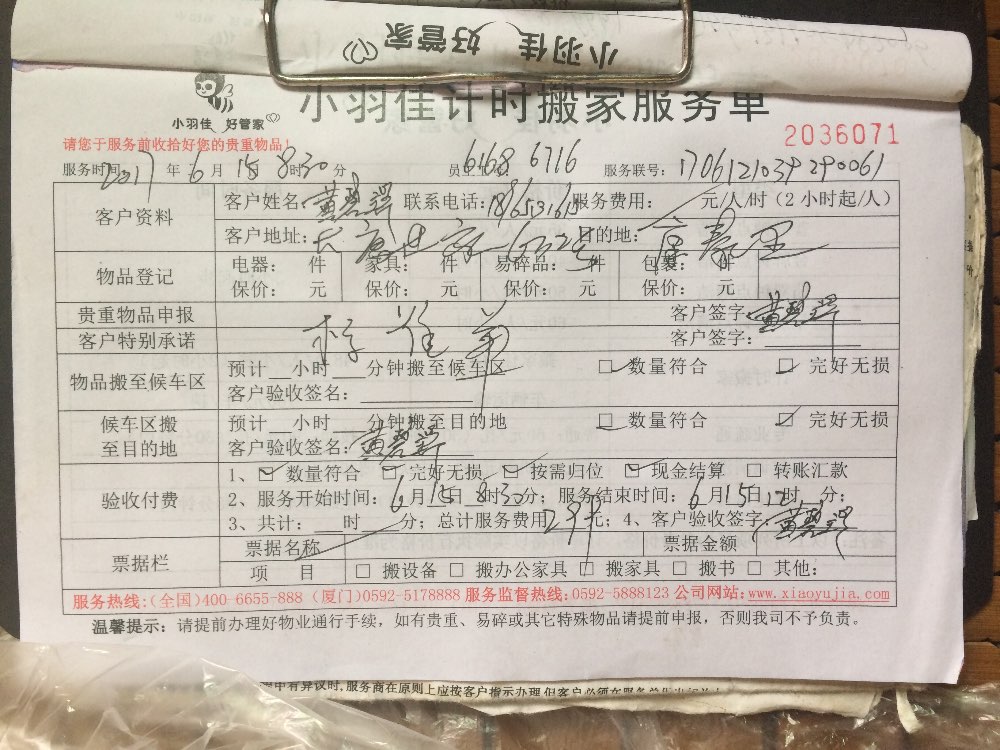 小羽佳 好管家
小羽佳 好管家
小羽佳计时搬家服务单
请您于服务前收拾好您的贵重物品!
2036071
服务时间: 2017 年 6 月 15 8时30分 员工 6168 6716 服务联号: 170612103 290061
客户资料 客户姓名: 黄碧 联系电话: 服务费用: 元/人/时 (2 小时起/人)
客户地址: 目的地:
物品登记 电器: 件 家具: 件 易碎品: 件 包裹: 件
保价: 元 保价: 元 保价: 元 保价: 元
贵重物品申报 客户签字: 黄碧
客户特别承诺 客户签字:
物品搬至候车区 预计 小时 分钟搬至候车区 ☑ 数量符合 ☑ 完好无损
客户验收签名:
候车区搬至目的地 预计 小时 分钟搬至目的地 ☑ 数量符合 ☑ 完好无损
客户验收签名: 黄碧
验收付费 1、☑ 数量符合 ☑ 完好无损 ☑ 按需归位 ☑ 现金结算 □ 转账汇款
2、服务开始时间: 6 月 15 日 8 时 30 分; 服务结束时间: 6 月 15 日 12 时 分;
3、共计: 时 分; 总计服务费用 元; 4、客户验收签字: 黄碧
票据栏 票据名称 票据金额
项 目 □ 搬设备 □ 搬办公家具 □ 搬家具 □ 搬书 □ 其他:
服务热线:(全国)400-6655-888 (厦门)0592-5178888 服务监督热线:0592-5888123 公司网站:www.xiaoyujia.com
温馨提示: 请提前办理好物业通行手续, 如有贵重、易碎或其它特殊物品请提前申报, 否则我司不予负责。
中有异议时,服务商在原则上应按客户指示办理,但客户必须在服务单